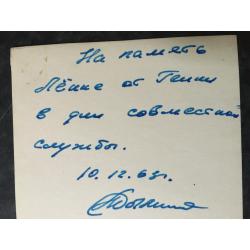 На память
Лёнке от Гении
в дни совместной
службы.
10.12.63г.